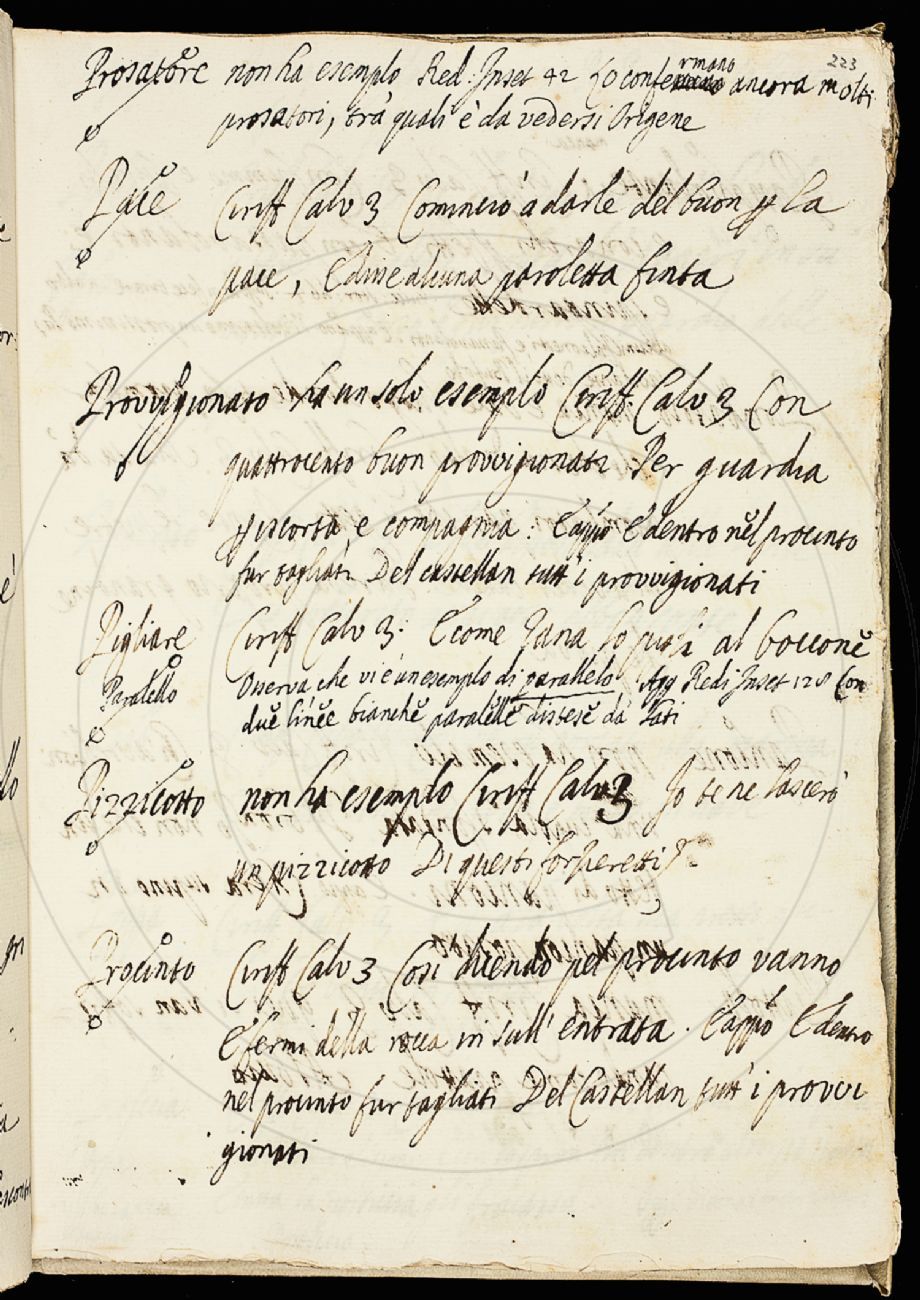 223
Prosatore non ha esemplo Red: Inset 42 Lo confermano ancora molti
prosatori, trà quali è da vedersi Origene
Pace Ciriff Calv 3 Cominciò a darle del buon p la
pace, E disse alcuna paroletta finta
Provvigionato ha un solo esemplo Ciriff. Calv 3 Con
quattrocento buon provvigionati Per guardia
p iscorta, e compagnia: E appiè E dentro nel procinto
fur tagliati Del castellan tutt' i provvigionati
Pigliare Ciriff Calv 3: E come Jana so pigli al boccone
Paralello Osserva che vi è un esemplo di parallelo Agg Redi Inset 128 Con
due linee bianche paralelle distese da lati
Pizzicotto non ha esemplo Ciriff Calv 3 Io te ne lascerò
un pizzicotto Di questi forzeretti
Procinto Ciriff Calv 3 Cosi dicendo pel procinto vanno
E fermi della rocca in sull' entrata. E appiè E dentro
nel procinto fur tagliati Del Castellan tutt' i provvi
gionati